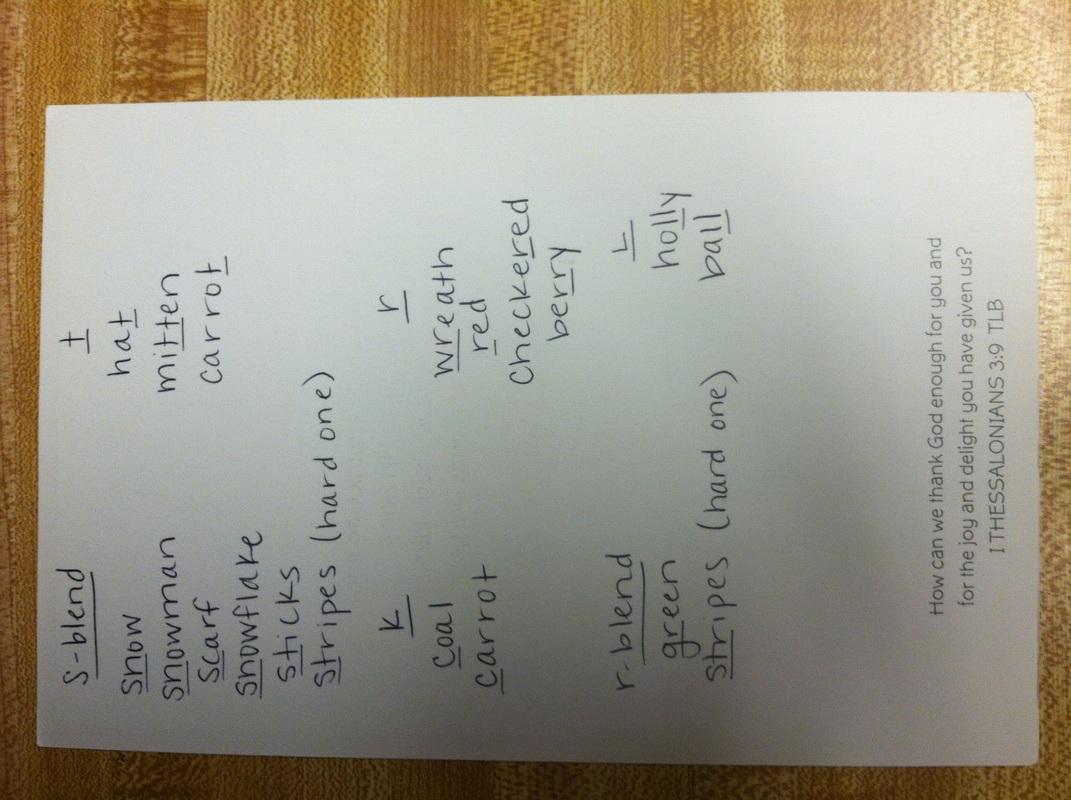 s-blend
snow
snowman
scarf
snowflake
sticks
stripes (hard one)
t
hat
mitten
carrot
k
coal
carrot
r
wreath
red
checkered
berry
r-blend
green
stripes (hard one)
L
holly
ball
How can we thank God enough for you and
for the joy and delight you have given us?
I THESSALONIANS 3:9 TLB